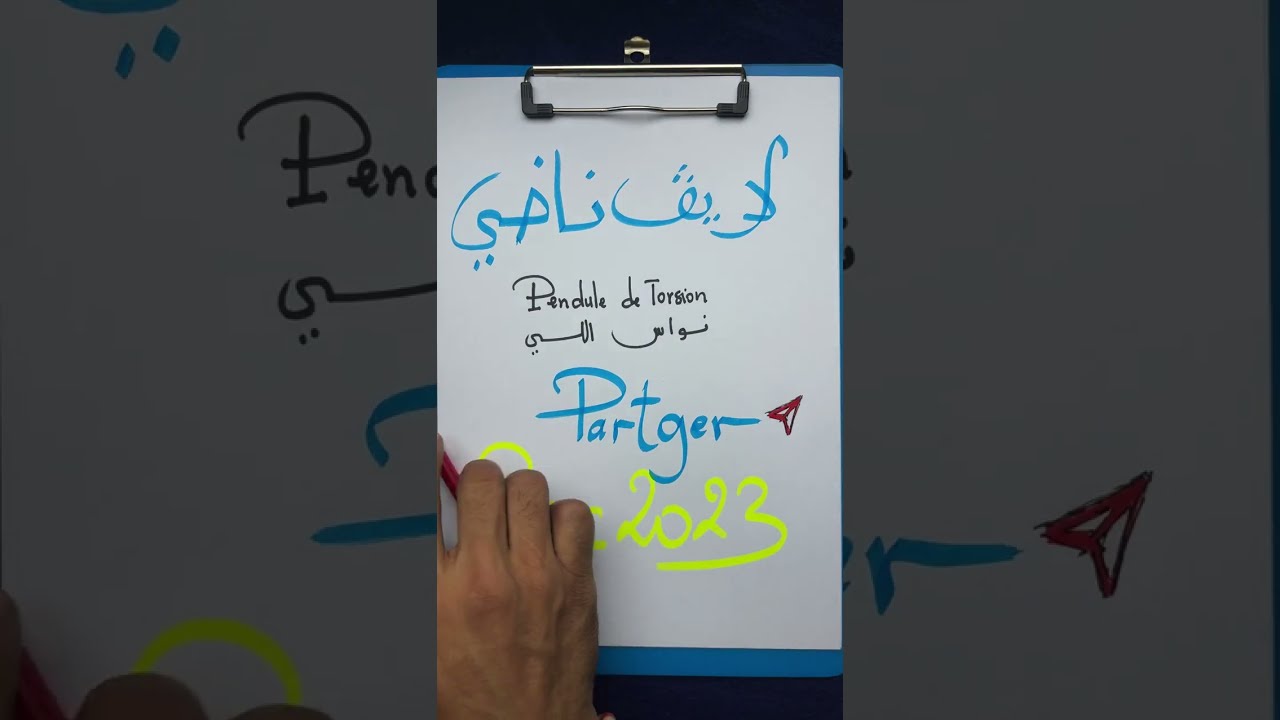 لايڤ ناضي
Pendule de Torsion
نواس اللي
Partger
2023